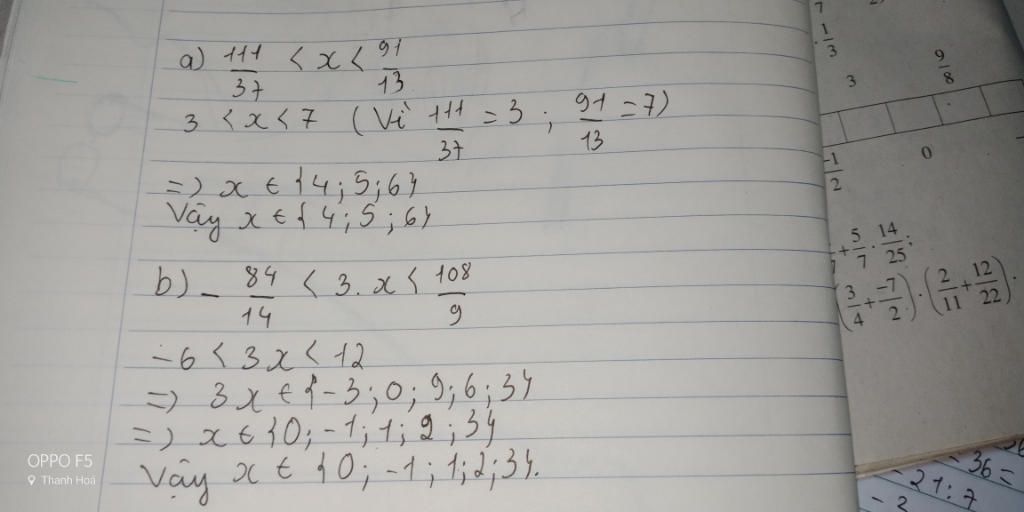 a) 111/37 < x < 91/13
3 < x < 7 (Vì 111/37 = 3 ; 91/13 = 7)
=> x ∈ {4; 5; 6}
Vậy x ∈ {4; 5; 6}
b) - 84/14 < 3. x < 108/9
-6 < 3x < 12
=> 3x ∈ {-3; 0; 9; 6; 3}
=> x ∈ {0; -1; 1; 2; 3}
Vậy x ∈ {0; -1; 1; 2; 3}.
OPPO F5
Thanh Hoá
1/3
3 9/8
-1/2 0
+ 5/7 . 14/25;
(3/4 + -7/2) . (2/11 + 12/22).
- 36 =
- 21 : 7